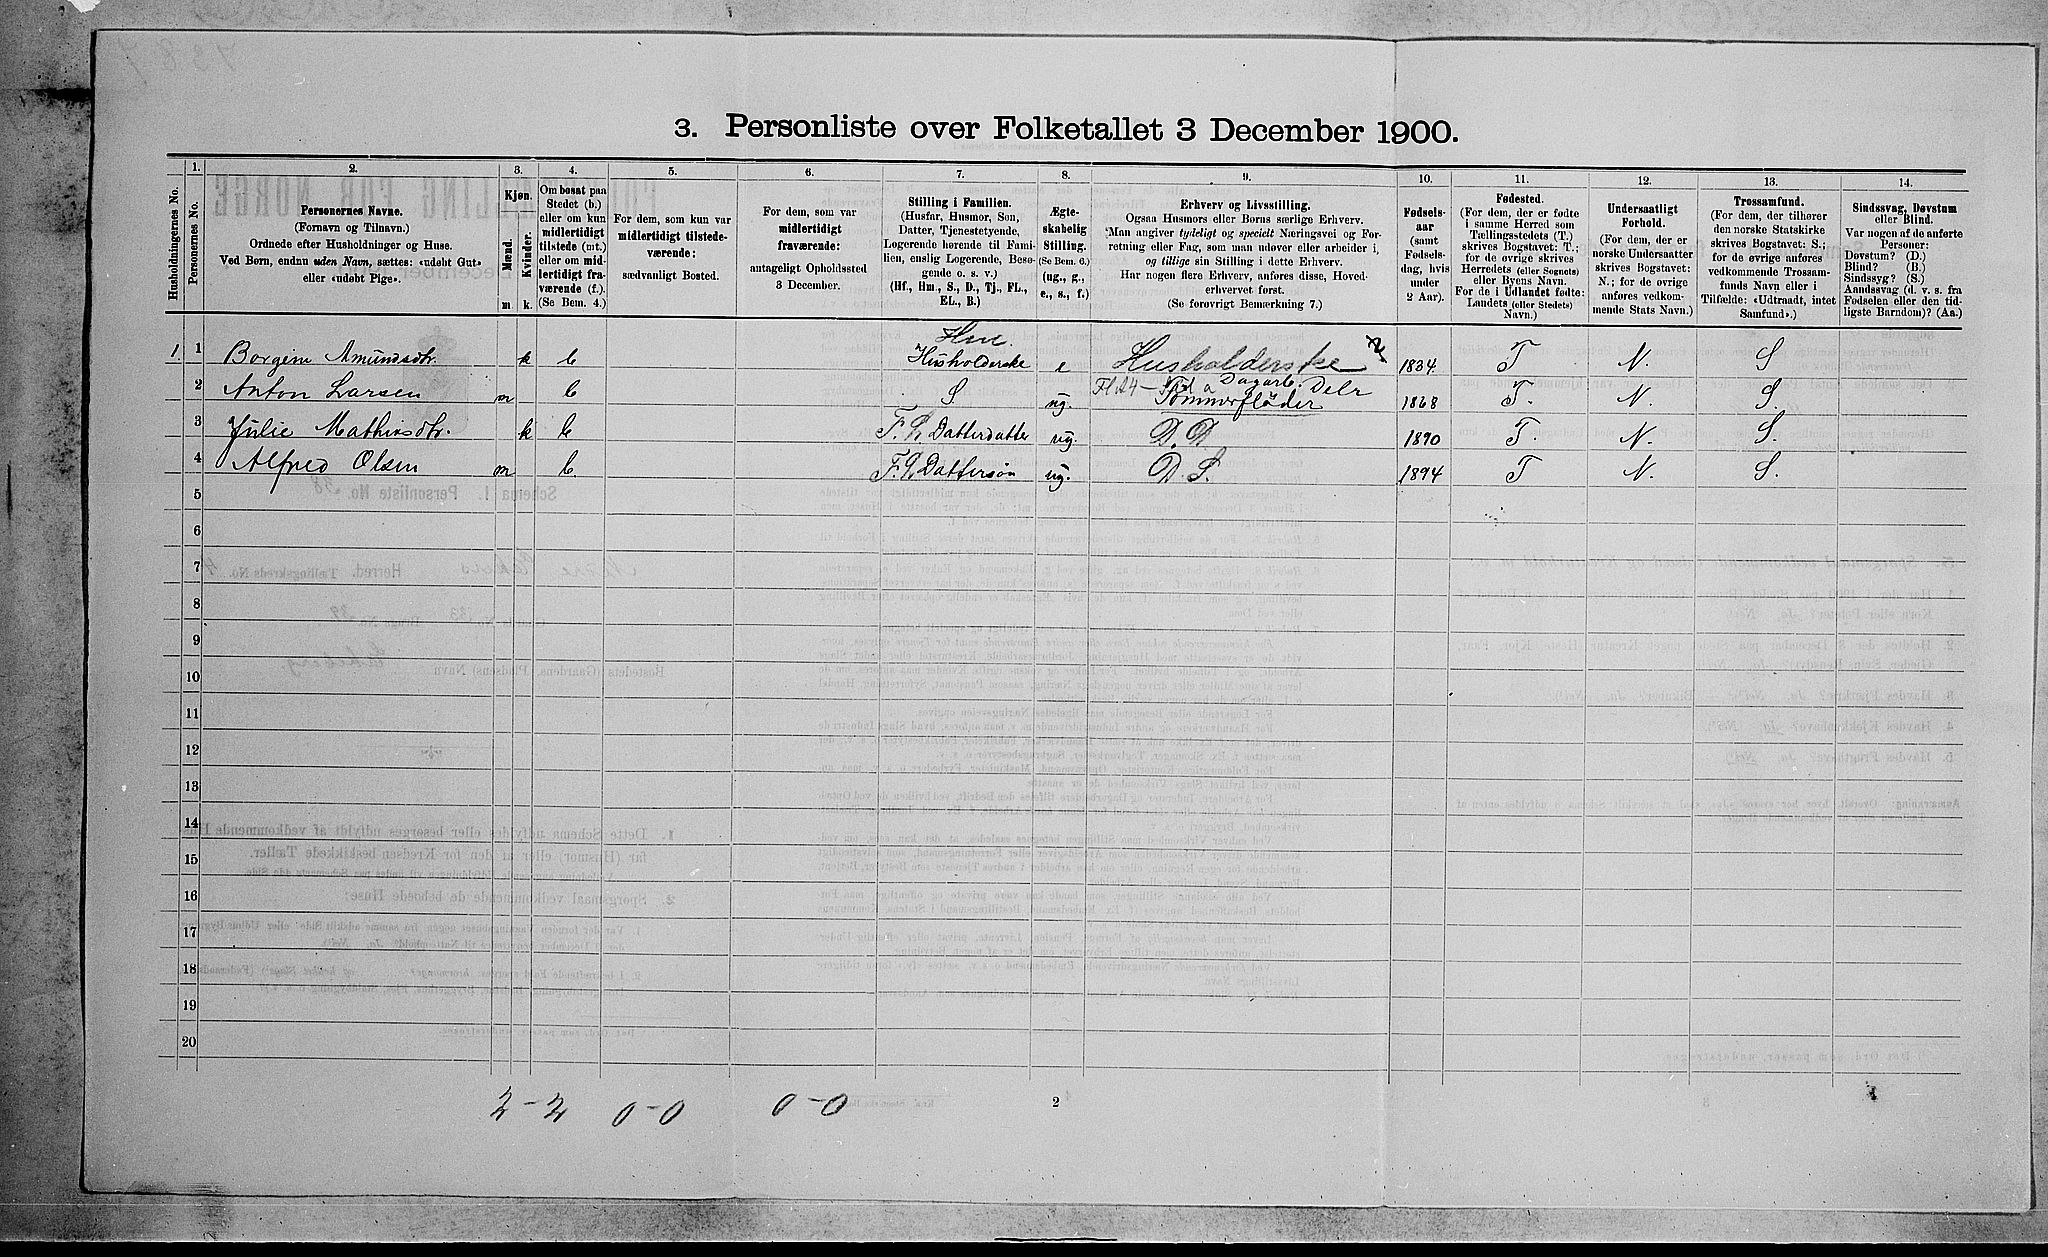 3. Personliste over Folketallet 3 December 1900.
Husholdningernes No.
1.
Personernes No.
2.
Personernes Navne.
(Fornavn og Tilnavn.)
Ordnede efter Husholdninger og Huse.
Ved Børn, endnu uden Navn, sættes: «udøbt Gut»
eller «udøbt Pige».
3.
Kjøn.
Mænd.
Kvinder.
m. k.
4.
Om bosat paa
Stedet (b.)
eller om kun
midlertidigt
tilstede (mt.)
eller om mid-
lertidigt fra-
værende (f.).
(Se Bem. 4.)
5.
For dem, som kun var
midlertidigt tilstede-
værende:
sædvanligt Bosted.
6.
For dem, som var
midlertidigt
fraværende:
antageligt Opholdssted
3 December.
7.
Stilling i Familien.
(Husfar, Husmor, Søn,
Datter, Tjenestetyende,
Logerende hørende til Fami-
lien, enslig Logerende, Besø-
gende o. s. v.)
(Hf., Hm., S., D., Tj., FL.,
EL., B.)
8.
Ægte-
skabelig
Stilling.
(Se Bem. 6.)
(ug., g.,
e., s., f.)
9.
Erhverv og Livsstilling.
Ogsaa Husmors eller Børns særlige Erhverv.
Man angiver tydeligt og specielt Næringsvei og For-
retning eller Fag, som man udøver eller arbeider i,
og tillige sin Stilling i dette Erhverv.
Har nogen flere Erhverv, anføres disse, Hoved-
erhvervet først.
(Se forøvrigt Bemærkning 7.)
10.
Fødsels-
aar
(samt
Fødsels-
dag, hvis
under
2 Aar).
11.
Fødested.
(For dem, der er fødte
i samme Herred som
Tællingsstedets (T.)
skrives Bogstavet: T.;
for de øvrige skrives
Herredets (eller Sognets)
eller Byens Navn.
For de i Udlandet fødte:
Landets (eller Stedets)
Navn.)
12.
Undersaatligt
Forhold.
(For dem, der er
norske Undersaatter
skrives Bogstavet:
N.; for de øvrige
anføres vedkom-
mende Stats Navn.)
13.
Trossamfund.
(For dem, der tilhører
den norske Statskirke
skrives Bogstavet: S.;
for de øvrige anføres
vedkommende Trossam-
funds Navn eller i
Tilfælde: «Udtraadt, intet
Samfund».)
14.
Sindssvag, Døvstum
eller Blind.
Var nogen af de anførte
Personer:
Døvstum? (D.)
Blind? (B.)
Sindssyg? (S.)
Aandssvag (d. v. s. fra
Fødselen eller den tid-
ligste Barndom)? (Aa.)
Hm.
1. 1 Borgine Amundsdtr. k b Husholderske e Husholderske 1834. T N. S
2 Anton Larsen m b S ug. Dagarb. Tømmerfløder 1868 T. N. S.
3 Julie Mathisdtr. k b F. L. Datterdatter ug. D. D 1890 T. N. S.
4 Alfred Olsen m b F. L. Dattersøn ug. D. S. 1894 T N. S.
5
6
7
8
9
10
11
12
13
14
15
16
17
18
19
20
2-2 0-0 0-0 2